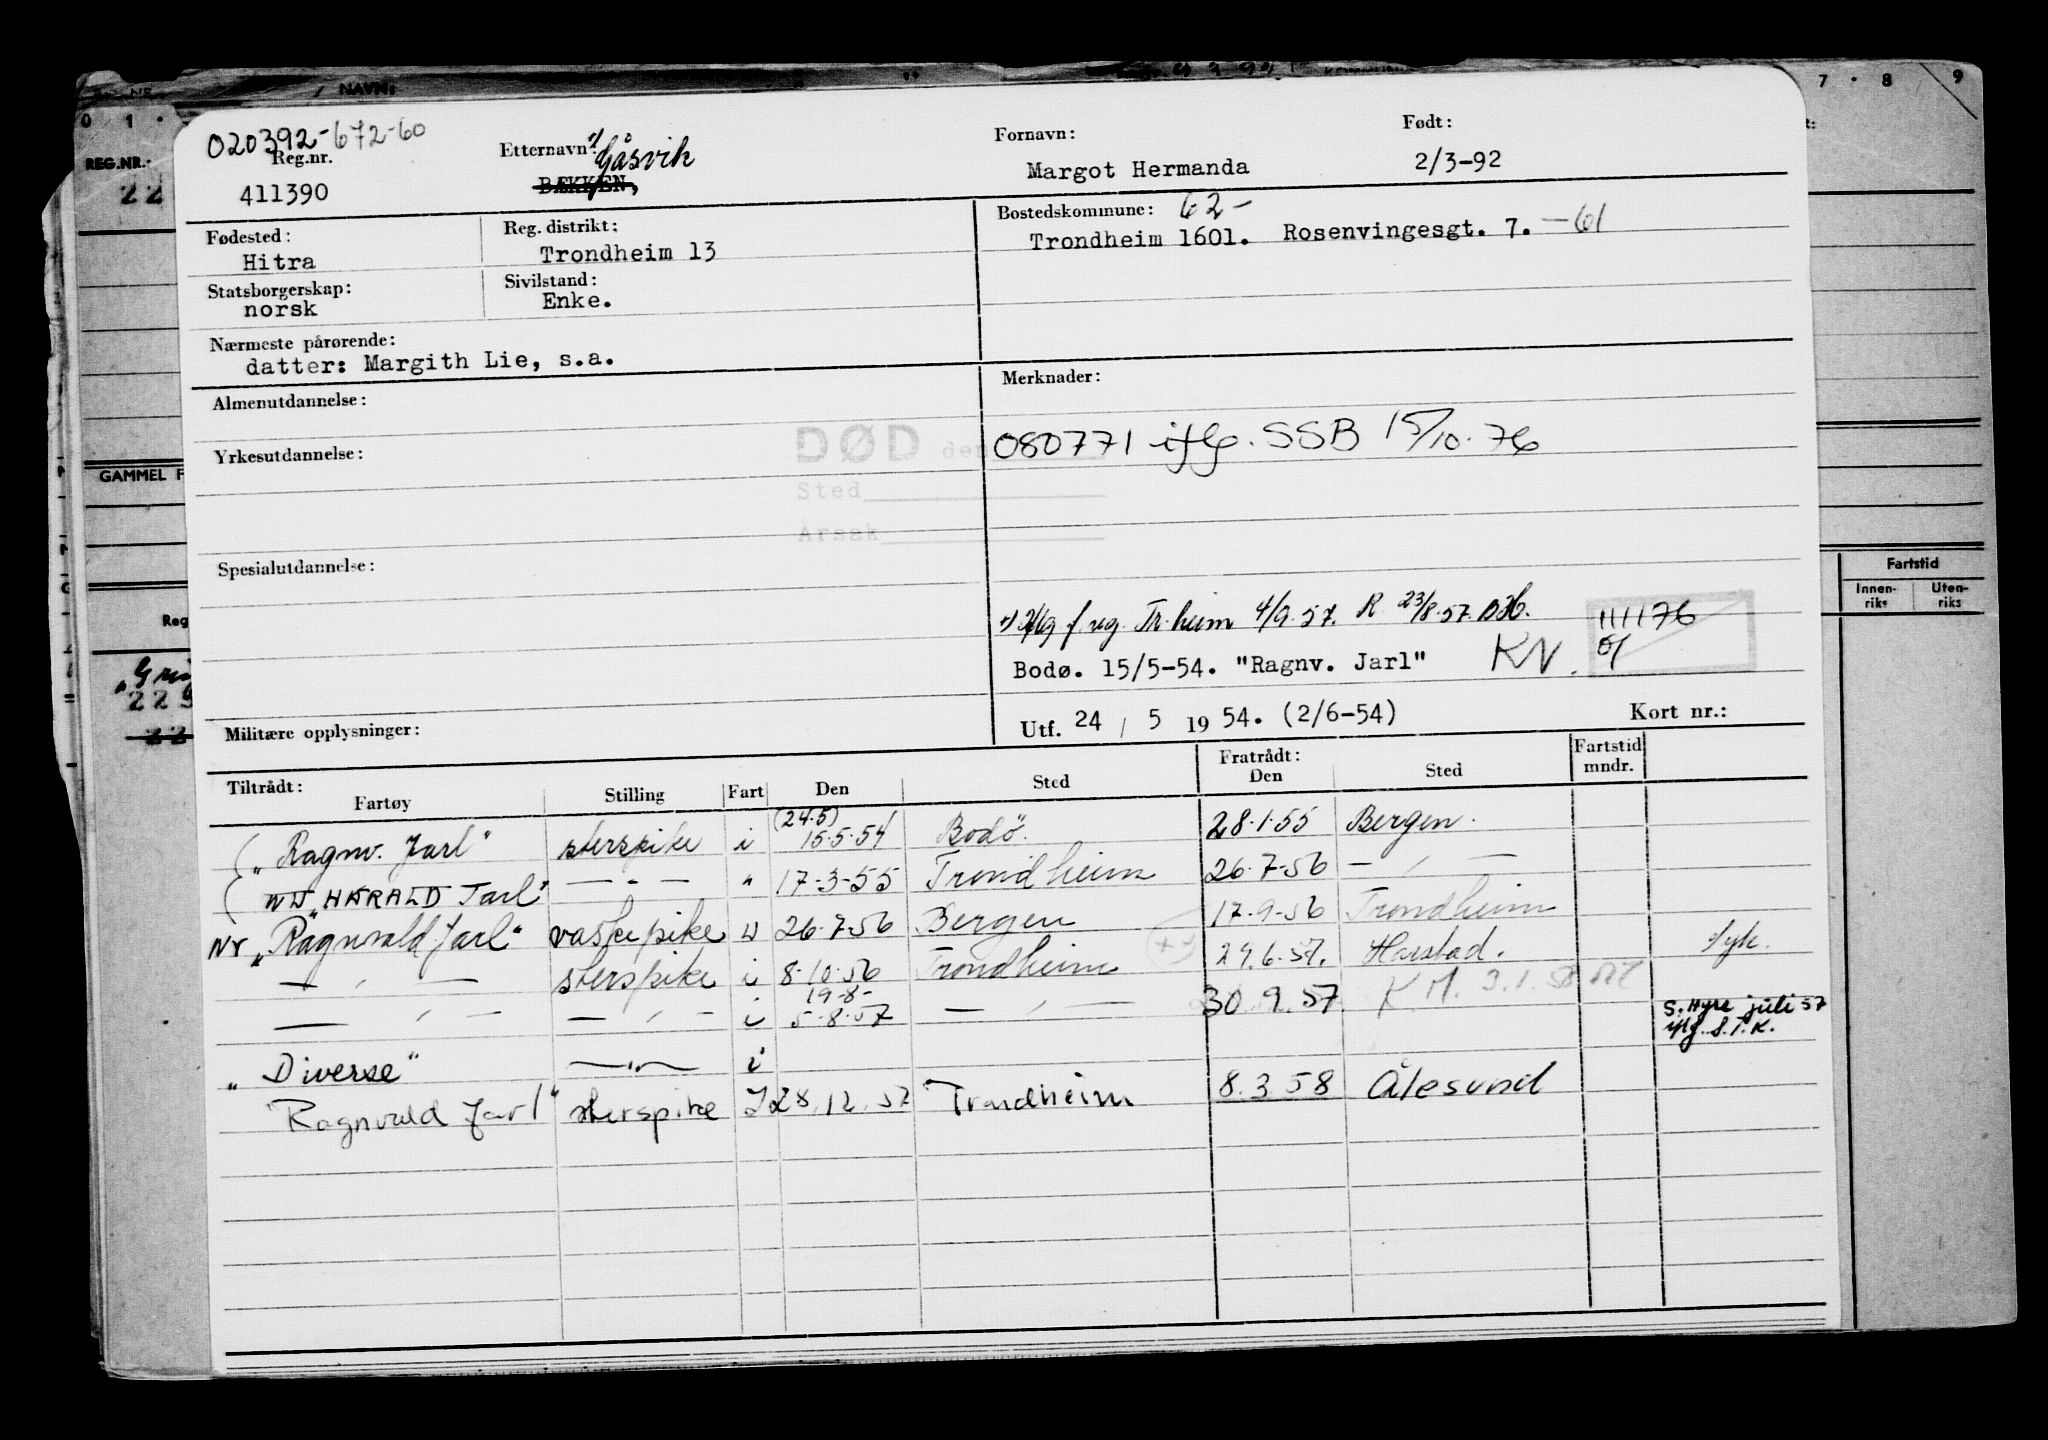 NR. NAVN: KOMMUNE 7 · 8 9
0 1 ·
REG.NR.:
22
020392-672-60
Reg.nr.
411390
Etternavn: 1/ Gåsvik
BÆKKEN,
Fornavn:
Margot Hermanda
Født:
2/3-92
Fødested:
Hitra
Reg. distrikt:
Trondheim 13
Bostedskommune: 62-
Trondheim 1601. Rosenvingesgt. 7. -61
Statsborgerskap:
norsk
Sivilstand:
Enke.
Nærmeste pårørende:
datter: Margith Lie, s.a.
Almenutdannelse:
Merknader:
DØD den
Sted
Årsak
080771 iflg. SSB 15/10.76
Yrkesutdannelse:
GAMMEL F
Spesialutdannelse:
Fartstid
Innen-riks Uten-riks
Reg
1) iflg f. reg. Tr.heim 4/9.57. R 23/8.57.
111176
Bodø. 15/5-54. "Ragnv. Jarl" KN.
Utf. 24 / 5 19 54. (2/6-54) Kort nr.:
Militære opplysninger:
Tiltrådt: Fratrådt: Fartstid mndr.
Fartøy Stilling Fart Den Sted Den Sted
"Ragnv. Jarl" sterspike i (24.5) 15.5.54 Bodö. 28.1.55 Bergen.
"HARALD Jarl" — " — " 17-3-55 Trondheim 26.7-56 — " —
NY "Ragnvald Jarl" vaskepike U 26.7-56 Bergen 17.9-56 Trondheim
— " — sterspike i 8.10.56 Trondheim 29.6.57. Harstad. syk.
— " — — " — i 19-8- 5-8-57 — " — 30.9.57. K M. 3.1.58
S. Hyre juli 57
iflg. S.T.K.
"Diverse" — " — i
"Ragnvald Jarl" sterspike I 28.12.57 Trondheim 8.3.58 Ålesund